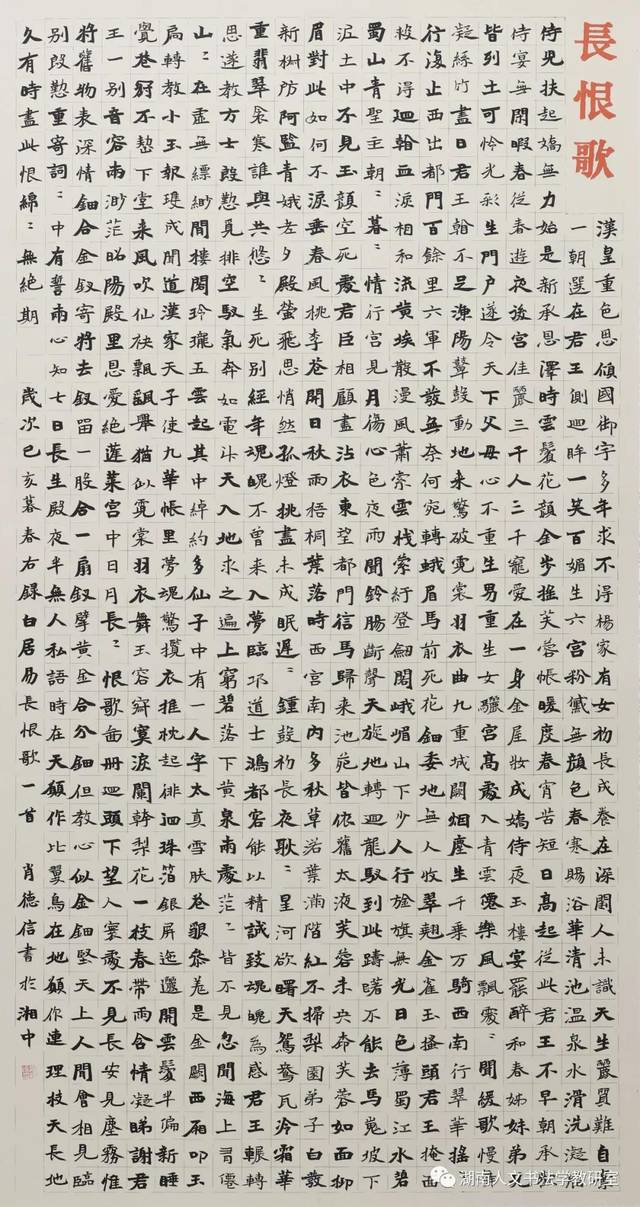 長恨歌
漢皇重色思傾國御宇多年求不得楊家有女初長成養在深閨人未識天生麗質難自棄
一朝選在君王側迴眸一笑百媚生六宮粉黛無顏色春寒賜浴華清池温泉水滑洗凝脂
侍兒扶起嬌無力始是新承恩澤時雲鬢花顏金步搖芙蓉帳暖度春宵苦短日高起從此君王不早朝承歡
侍宴無閑暇春從春遊夜後宮佳麗三千人三千寵愛在一身金屋妝成嬌侍夜玉樓宴罷醉和春姊妹弟兄
皆列土可怜光彩生門户遂令天下父母心不重生男重生女驪宮高處入青雲僊樂風飄處〻聞緩歌慢舞
凝絲竹盡日君王看不足漁陽鼙鼓動地来驚破霓裳羽衣曲九重城闕烟塵生千乘万騎西南行翠華搖〻
行復止西出都門百餘里六軍不發無奈何宛轉蛾眉馬前死花鈿委地無人收翠翹金雀玉搔頭君王掩面
救不得迴看血淚相和流黄埃散漫風蕭索雲棧縈紆登劍閣峨嵋山下少人行旌旗無光日色薄蜀江水碧
蜀山青聖主朝〻暮〻情行宮見月傷心色夜雨聞鈴腸斷聲天旋地轉迴龍馭到此躊躇不能去馬嵬坡下
泥土中不見玉顏空死處君臣相顧盡沾衣東望都門信馬歸来池苑皆依舊太液芙蓉未央柳芙蓉如面柳
眉對此如何不淚垂春風桃李花開日秋雨梧桐葉落時西宮南内多秋草落葉滿階紅不掃梨園弟子白髮
新椒房阿監青娥老夕殿螢飛思悄然孤燈挑盡未成眠遲〻鐘鼓初長夜耿〻星河欲曙天鴛鴦瓦冷霜華
重翡翠衾寒誰與共悠〻生死別經年魂魄不曾来入夢臨邛道士鴻都客能以精誠致魂魄為感君王輾轉
思遂教方士殷懃覓排空馭氣奔如電升天入地求之遍上窮碧落下黄泉兩處茫〻皆不見忽聞海上有僊
山〻在虛無縹緲間樓閣玲瓏五雲起其中綽約多仙子中有一人字太真雪膚花貌參差是金闕西廂叩玉
扃轉教小玉報雙成聞道漢家天子使九華帳里夢魂驚攬衣推枕起徘徊珠箔銀屏迤邐開雲鬢半偏新睡
覺花冠不整下堂来風吹仙袂飄颻舉猶似霓裳羽衣舞玉容寂寞淚闌幹梨花一枝春帶雨含情凝睇謝君
王一別音容兩渺茫昭陽殿里恩愛絕蓬萊宮中日月長〻恨歌面冊迴頭下望人寰處不見長安見塵霧惟
將舊物表深情鈿合金釵寄將去釵留一股合一扇釵擘黄金合分鈿但教心似金鈿堅天上人間會相見臨
別殷懃重寄詞〻中有誓兩心知七日長生殿夜半無人私語時在天願作比翼鳥在地願作連理枝天長地
久有時盡此恨綿〻無絕期 歲次己亥暮春右録白居易長恨歌一首 肖德信書於湘中
湖南人文书法学教研室